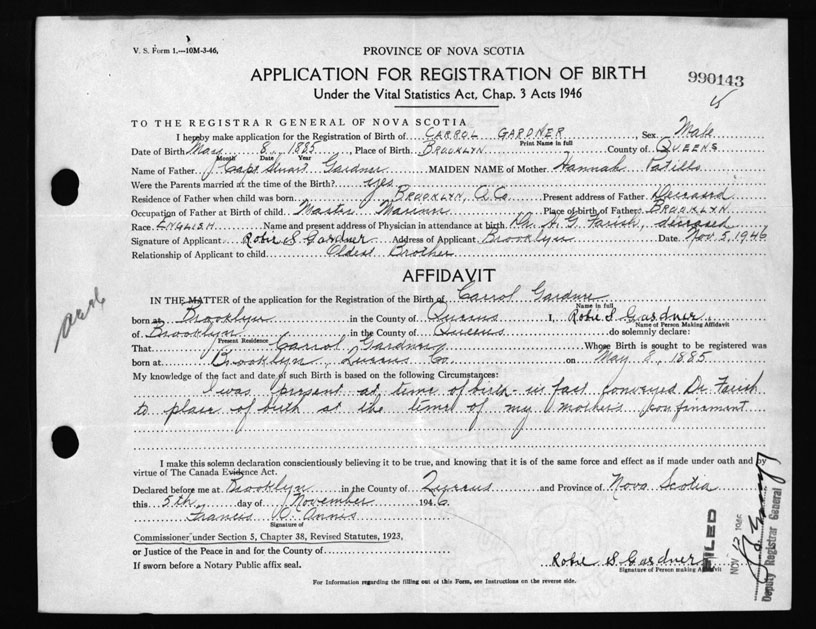 V. S. Form 1.—10M-3-46,
PROVINCE OF NOVA SCOTIA
APPLICATION FOR REGISTRATION OF BIRTH
990143
Under the Vital Statistics Act, Chap. 3 Acts 1946
TO THE REGISTRAR GENERAL OF NOVA SCOTIA
I hereby make application for the Registration of Birth of CARROL GARDNER Sex Male
Print Name in full
Date of Birth May 8, 1885 Place of Birth BROOKLYN County of QUEENS
Month Date Year
Name of Father Capt Stuart Gardner MAIDEN NAME of Mother Hannah Patillo
Were the Parents married at the time of the Birth? yes
Residence of Father when child was born BROOKLYN, Q. Co. Present address of Father Deceased
Occupation of Father at Birth of child Master Mariner Place of birth of Father BROOKLYN
Race ENGLISH Name and present address of Physician in attendance at birth Dr. A. G. Farish, deceased
Signature of Applicant Robie S Gardner Address of Applicant Brooklyn Date Nov. 5, 1946
Relationship of Applicant to child Oldest Brother
AFFIDAVIT
IN THE MATTER of the application for the Registration of the Birth of Carrol Gardner
Name in full
born at Brooklyn in the County of Queens I, Robie S Gardner
Name of Person Making Affidavit
of Brooklyn in the County of Queens do solemnly declare:
Present Residence
That Carrol Gardner Whose Birth is sought to be registered was
born at Brooklyn, Queens Co. on May 8, 1885
My knowledge of the fact and date of such Birth is based on the following Circumstances:
I was present at time of birth - in fact conveyed Dr. Farish
to place of birth at the time of my mother's confinement
I make this solemn declaration conscientiously believing it to be true, and knowing that it is of the same force and effect as if made under oath and by
virtue of The Canada Evidence Act.
Declared before me at Brooklyn in the County of Queens and Province of Nova Scotia
this 5th day of November 1946
Francis W. Annis
Signature of
Commissioner under Section 5, Chapter 38, Revised Statutes, 1923,
or Justice of the Peace in and for the County of
If sworn before a Notary Public affix seal.
Robie S Gardner
Signature of Person making Affidavit
For Information regarding the filling out of this Form, see Instructions on the reverse side.
FILED
NOV 12 1946
Deputy Registrar General